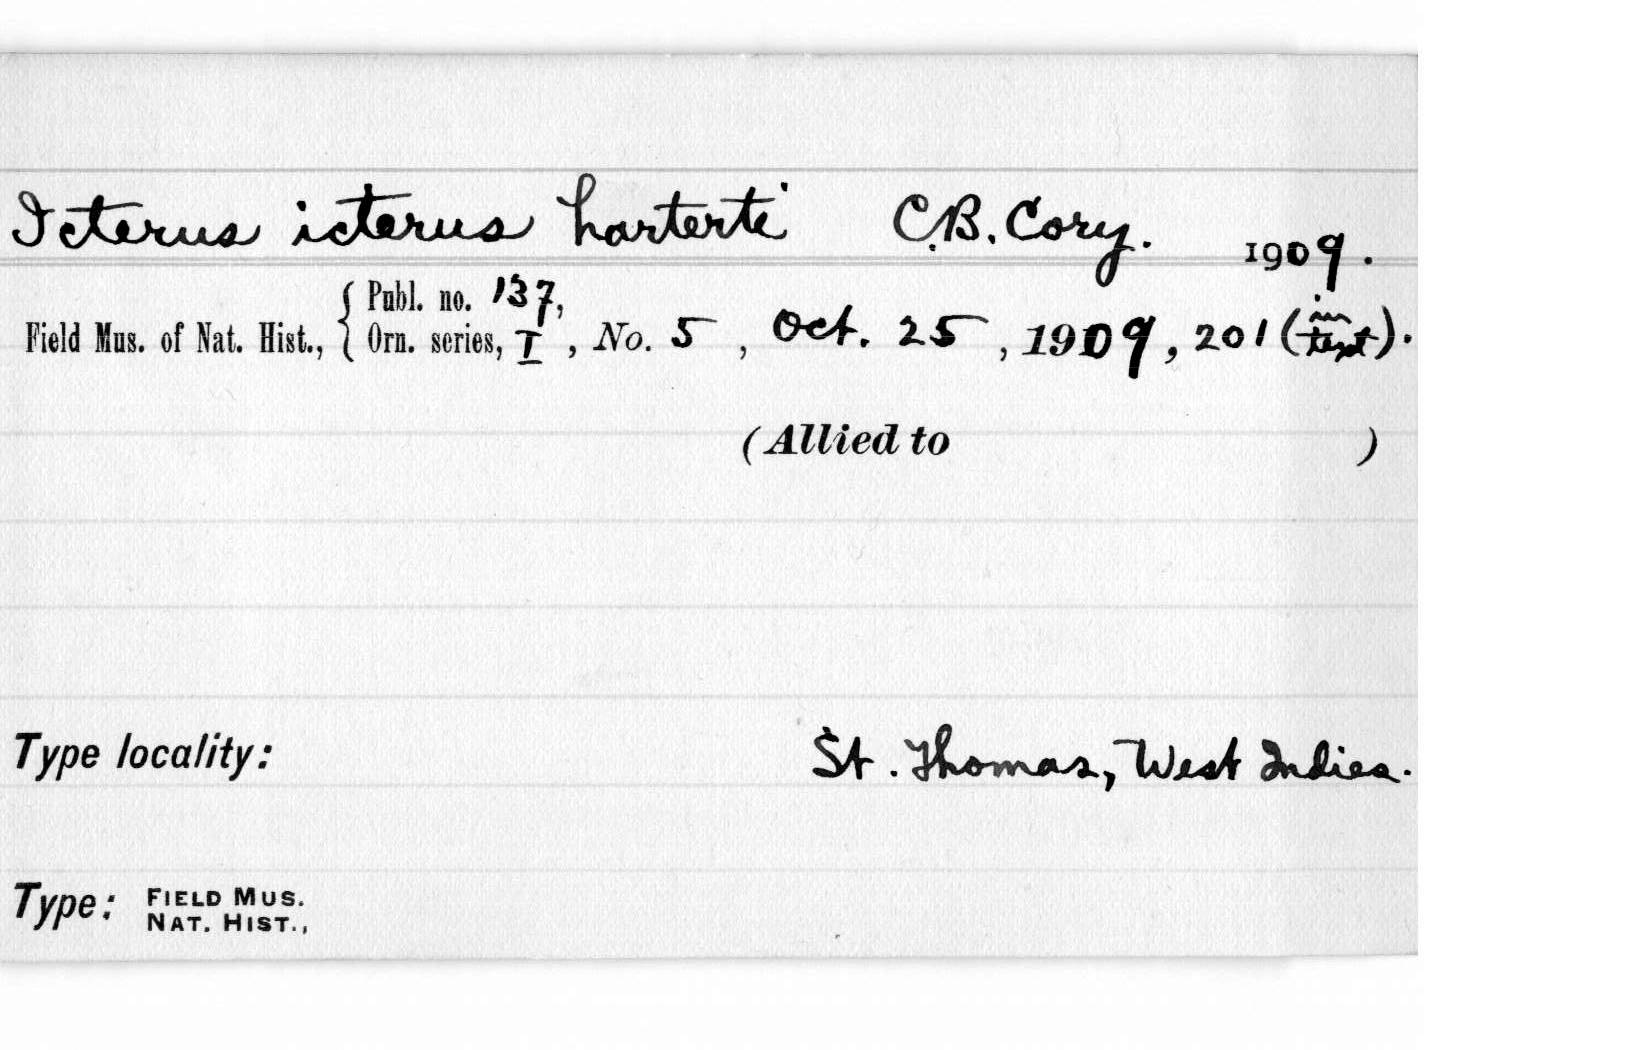 Icterus icterus harterti C.B. Cory. 1909.
Publ. no. 137,
Field Mus. of Nat. Hist., { Orn. series, I, No. 5, Oct. 25, 1909, 201 (in text).
(Allied to )
Type locality: St. Thomas, West Indies.
Type: FIELD MUS.
NAT. HIST.,